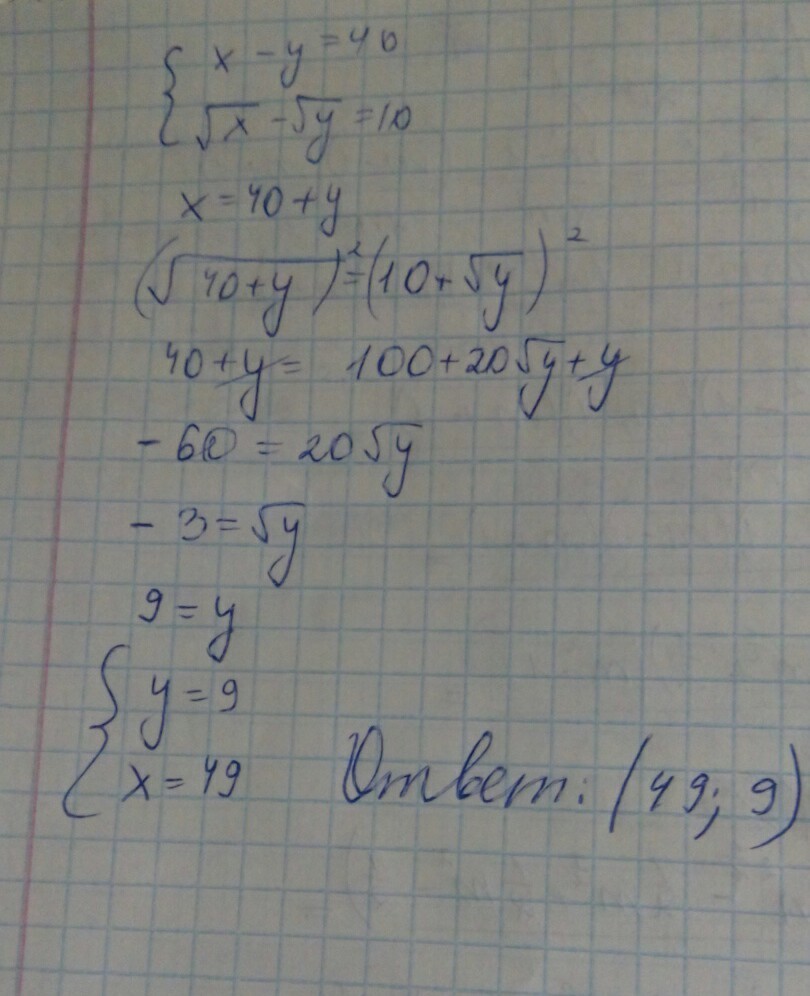 { x - y = 40
√x - √y = 10
x = 40 + y
(√40+y)² = (10 + √y)²
40 + y = 100 + 20√y + y
- 60 = 20√y
- 3 = √y
9 = y
{ y = 9
x = 49 Ответ: (49; 9)